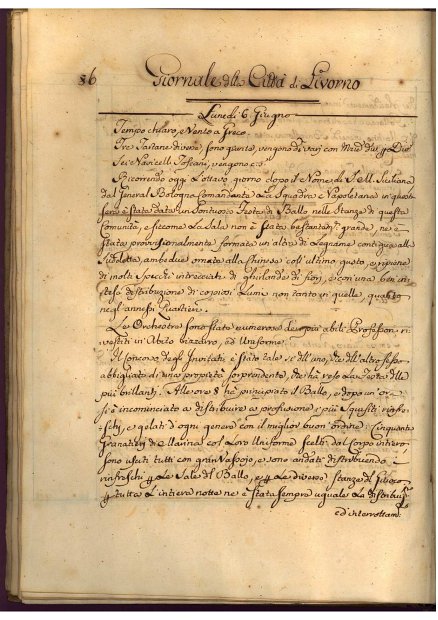 86 Giornale della Città di Livorno
Lunedì 6 Giugno
Tempo chiaro, e Vento a Greco.
Tre Tartane diverse, sono giunte, vengono di varj con
Sei Navicelli Toscani, vengono
Ricorrendo oggi l'ottavo giorno dopo il Nome di S. M. Siciliana
dal General Bologna Comandante Le Squadre Napoletana in questa
sera è stata data un Sontuosa Festa di Ballo nelle Stanze di questa
Comunità, e siccome La Sala non è stata bastantem: grande, ne è
stata provvisionalmente formata un'altra di Legname contigua alla
Sudetta, ambedue ornate alla Chinese coll'ultimo gusto, e ripiene
di molti Specchi intrecciati di ghirlande di fiori, e con una ben in-
tesa distribuzione di copiosi Lumi non tanto in quelle, quanto
negl'annessi Quartieri.
Le Orchestre sono state numerose de più abili Professori ri-
vestiti in Abito bizzarro, ed Uniforme.
Il Concorso degl'Invitati è stato tale, sì dell'uno, che dell'altro sesso
abbigliati di una proprietà sorprendente, che ha reso La Festa delle
più brillanti. Alle ore 8 ha principiato il Ballo, e dopo un'or-
si è incominciato a distribuire a profusione i più squisiti rinfre-
schi, e gelati d'ogni genere con il miglior buon'ordine. Cinquanta
Granatieri di Marina col Loro Uniforme scelti dal Corpo intero
sono usciti tutti con gran Vassojo, e sono andati distribuendo
rinfreschi p Le Sale del Ballo, e p Le diverse Stanze del Gioco
p tutta L'intiera notte ne è stata sempre uguale La distribuz:
ed'interrottam: